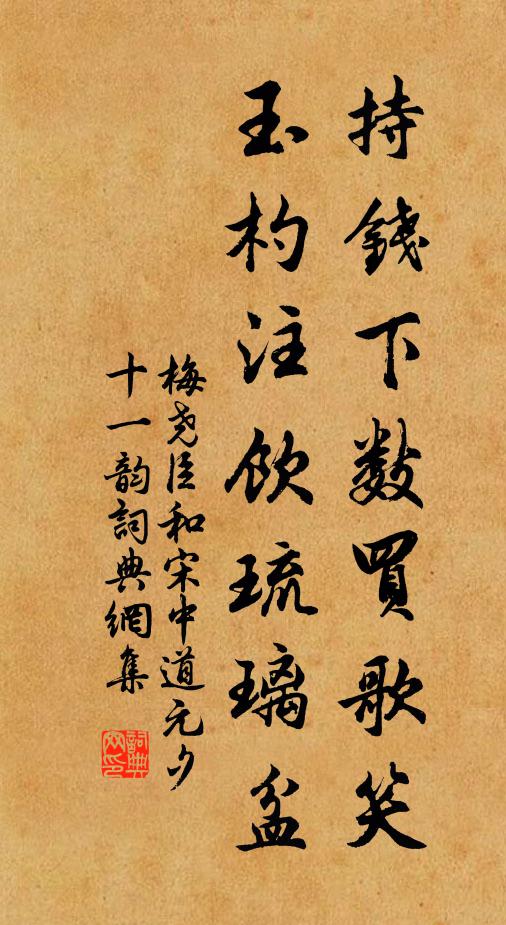 持錢下數買歌笑
玉杓注飲琉璃盆
梅尧臣和宋中道元夕
十一韵詞典網集
詞典網印